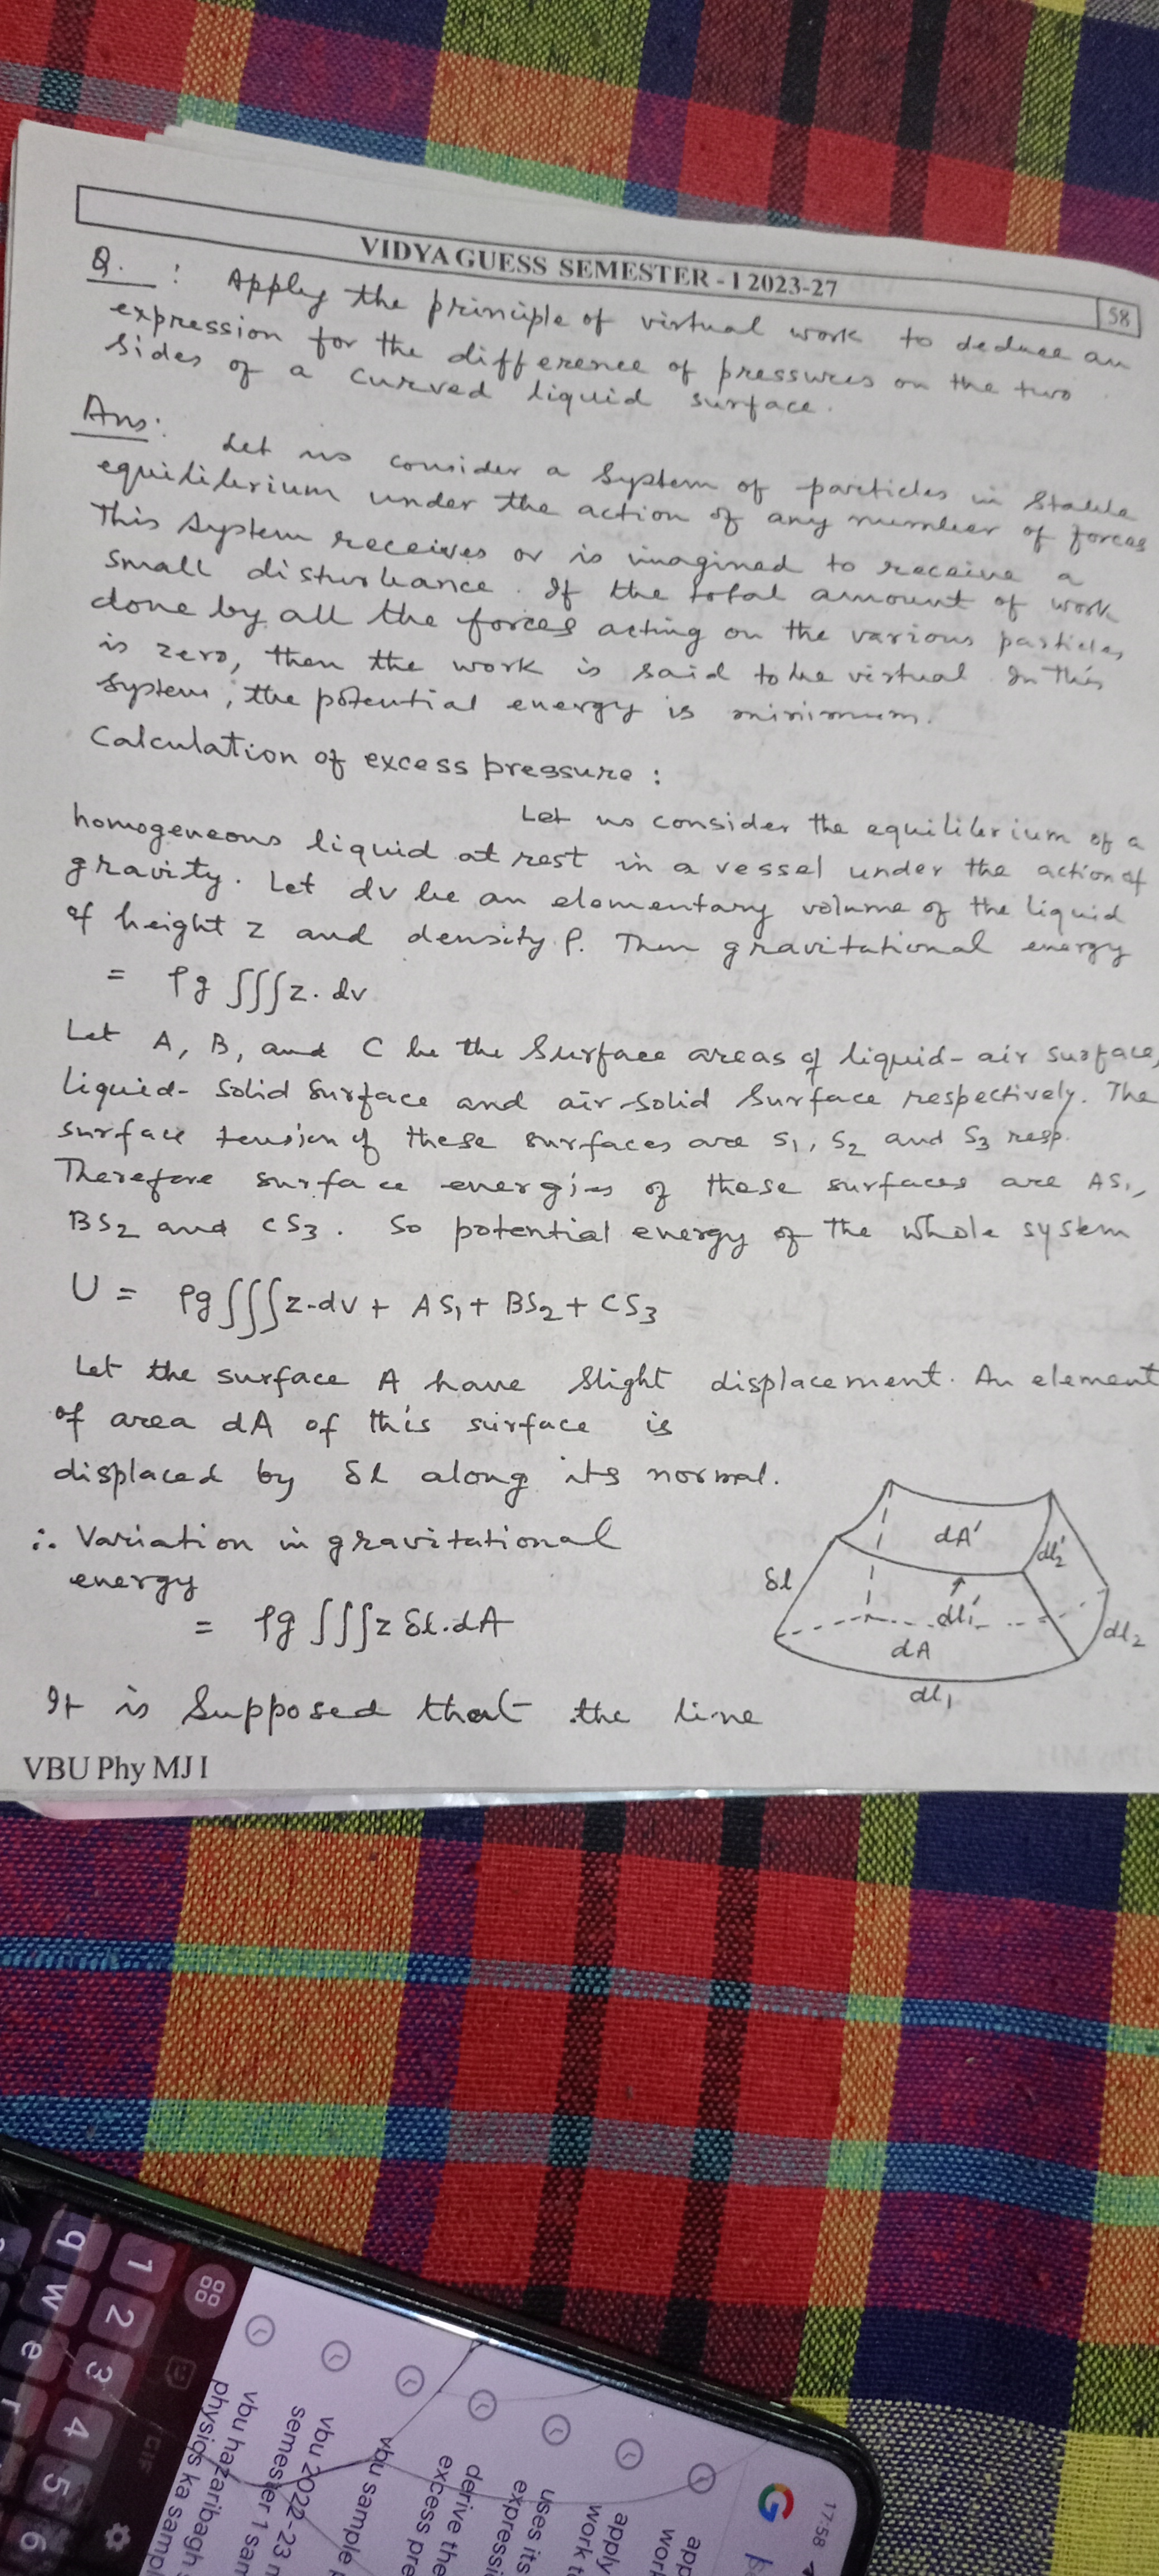 VIDYA GUESS SEMESTER - I 2023-27
58
Q. : Apply the principle of virtual work to deduce an
expression for the difference of pressures on the two
sides of a curved liquid surface.
Ans: Let us consider a system of particles in stable
equilibrium under the action of any number of forces
This system receives or is imagined to receive a
small disturbance. If the total amount of work
done by all the forces acting on the various particles
is zero, then the work is said to be virtual. In this
system, the potential energy is minimum.
Calculation of excess pressure :
Let us consider the equilibrium of a
homogeneous liquid at rest in a vessel under the action of
gravity. Let dv be an elementary volume of the liquid
of height z and density ρ. Then gravitational energy
= ρg ∫∫∫ z. dv
Let A, B, and C be the surface areas of liquid-air surface,
liquid- solid surface and air-solid surface respectively. The
surface tension of these surfaces are S1, S2 and S3 resp.
Therefore surface energies of these surfaces are AS1,
BS2 and CS3. So potential energy of the whole system
U = ρg ∫∫∫ z.dv + AS1 + BS2 + CS3
Let the surface A have slight displacement. An element
of area dA of this surface is
displaced by δl along its normal.
∴ Variation in gravitational
energy
= ρg ∫∫∫ z δl.dA
It is supposed that the line
dA'
dl2'
δl
dl1'
dl2
dA
dl1
VBU Phy MJ I
17:58
G
app
wor
apply
work t
uses its
expressi
derive the
excess pre
vbu sample
vbu 2022-23
semester 1 sam
vbu hazaribagh
physics ka samp
1 2 3 4 5 6
q w e r
GIF